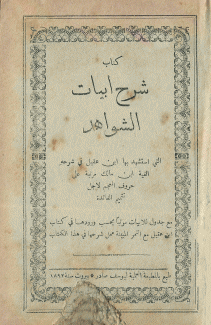 كتاب
شرح ابيات
الشواهد
التي استشهد بها ابن عقيل في شرحه
الفية ابن مالك مرتبة على
حروف المعجم لاجل
تعميم الفائدة
مع جدول للابيات مرتبًا بحسب ورودها في كتاب
ابن عقيل مع النمر المبينة محل شرحها في هذا الكتاب
طبع بالمطبعة العلمية ليوسف صادر بيروت سنة ١٨٩٢